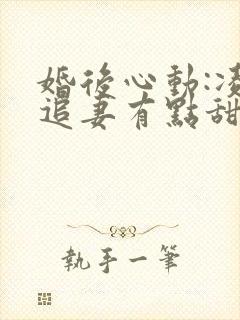 婚後心動:凌
追妻有點甜
執手一筆